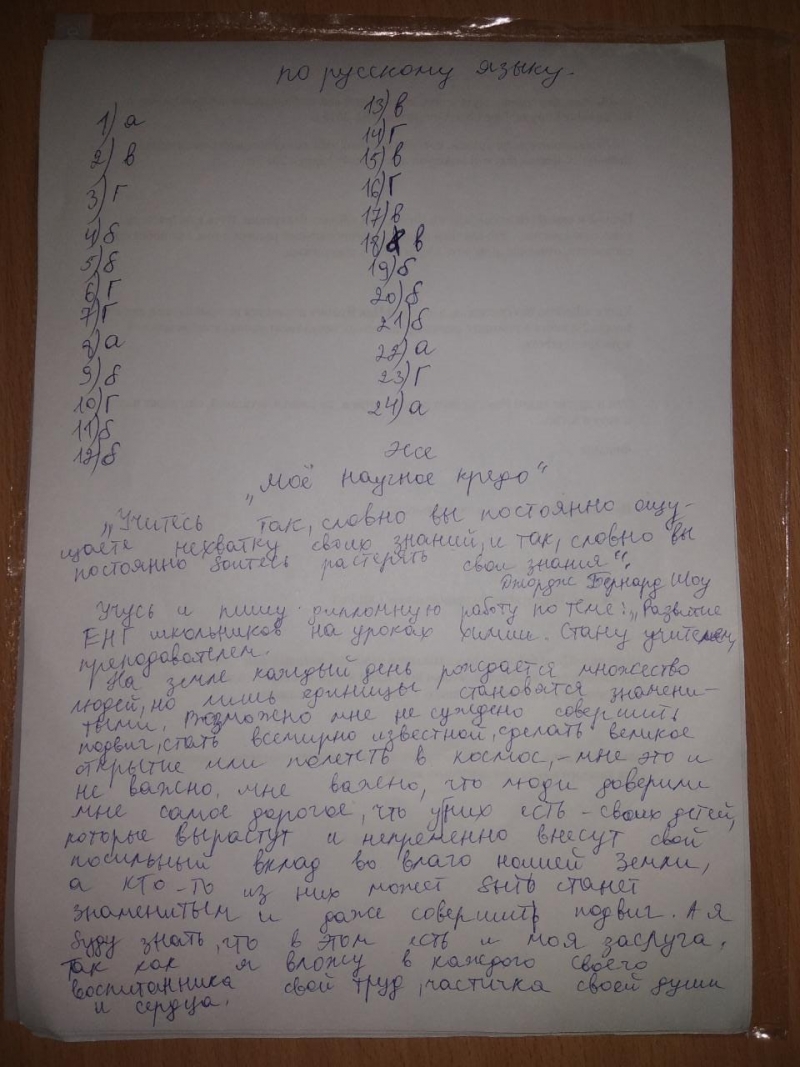 по русскому языку.
1) а
2) в
3) г
4) б
5) б
6) г
7) г
8) а
9) б
10) г
11) б
12) б
13) в
14) г
15) в
16) г
17) в
18) в
19) б
20) б
21) б
22) а
23) г
24) а
Эссе
„Моё научное кредо"
„Учитесь так, словно вы постоянно ощу-
щаете нехватку своих знаний, и так, словно вы
постоянно боитесь растерять свои знания".
Джордж Бернард Шоу
Учусь и пишу дипломную работу по теме: „Развитие
ЕНГ школьников на уроках химии. Стану учителем,
преподавателем.
На земле каждый день рождается множество
людей, но лишь единицы становятся знамени-
тыми. Возможно мне не суждено совершить
подвиг, стать всемирно известной, сделать великое
открытие или полететь в космос, - мне это и
не важно. мне важно, что люди доверили
мне самое дорогое, что у них есть - своих детей,
которые вырастут и непременно внесут свой
посильный вклад во благо нашей Земли,
а кто-то из них может быть станет
знаменитым и даже совершит подвиг. А я
буду знать, что в этом есть и моя заслуга.
так как я вложу в каждого своего
воспитанника свой труд, частичка своей души
и сердца.